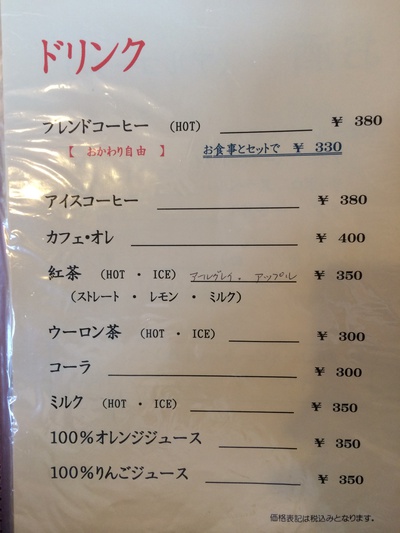 ドリンク
ブレンドコーヒー (HOT) ¥ 380
【 おかわり自由 】 お食事とセットで ¥ 330
アイスコーヒー ¥ 380
カフェ・オレ ¥ 400
紅茶 (HOT ・ ICE) アールグレイ . アップル ¥ 350
(ストレート ・ レモン ・ ミルク)
ウーロン茶 (HOT ・ ICE) ¥ 300
コーラ ¥ 300
ミルク (HOT ・ ICE) ¥ 350
100%オレンジジュース ¥ 350
100%りんごジュース ¥ 350
価格表記は税込みとなります。